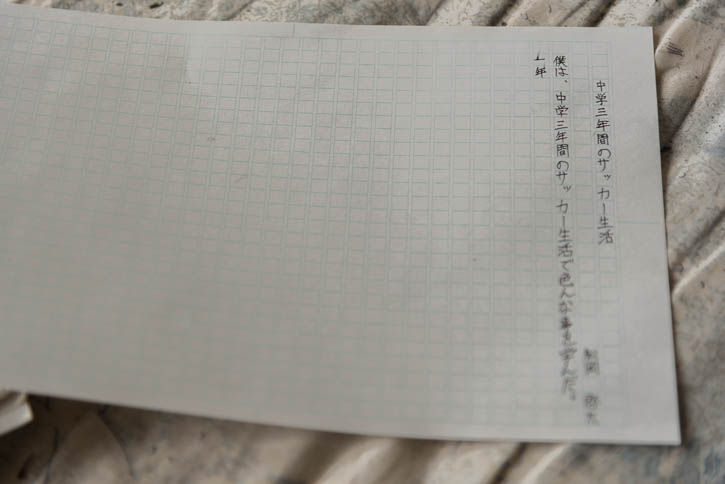 中学三年間のサッカー生活
僕は、中学三年間のサッカー生活で色んな事を学んだ。
一年